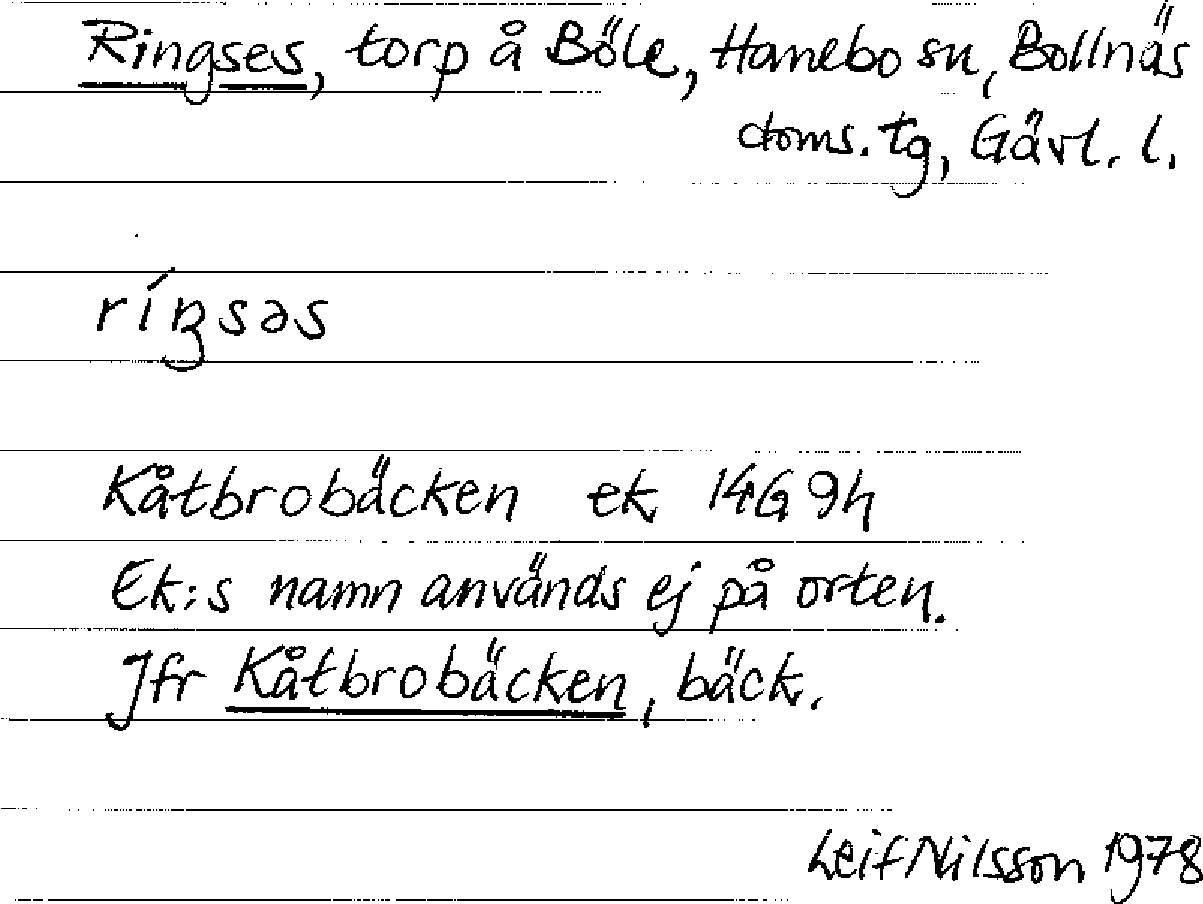 Ringses, torp å Böle, Hanebo sn, Bollnäs
doms. tg, Gävl. l.
ríŋsəs
Kåtbrobäcken ek 14G 9h
Ek:s namn används ej på orten.
Jfr Kåtbrobäcken, bäck.
Leif Nilsson 1978